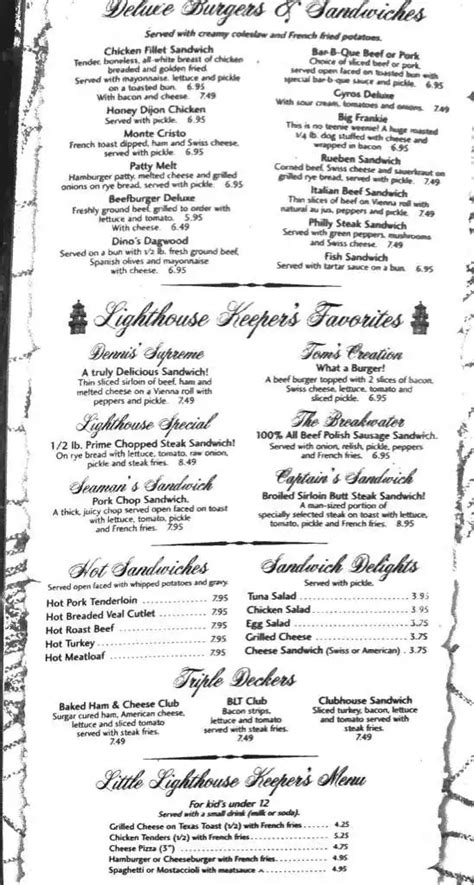 Deluxe Burgers & Sandwiches
Served with creamy coleslaw and French fried potatoes.
Chicken Fillet Sandwich
Tender, boneless, all-white breast of chicken
breaded and golden fried.
Served with mayonnaise, lettuce and pickle
on a toasted bun. 6.95
With bacon and cheese. 7.49
Honey Dijon Chicken
Served with pickle. 6.95
Monte Cristo
French toast dipped, ham and Swiss cheese,
served with pickle. 6.95
Patty Melt
Hamburger patty, melted cheese and grilled
onions on rye bread, served with pickle. 6.95
Beefburger Deluxe
Freshly ground beef, grilled to order with
lettuce and tomato. 5.95
With cheese. 6.49
Dino's Dagwood
Served on a bun with 1/2 lb. fresh ground beef,
Spanish olives and mayonnaise
with cheese. 6.95
Bar-B-Que Beef or Pork
Choice of sliced beef or pork,
served open faced on toasted bun with
special bar-b-que sauce and pickle. 6.95
Gyros Deluxe
With sour cream, tomatoes and onions. 7.49
Big Frankie
This is no teenie weenie! A huge roasted
1/4 lb. dog stuffed with cheese and
wrapped in bacon 6.95
Rueben Sandwich
Corned beef, Swiss cheese and sauerkraut on
grilled rye bread, served with pickle. 7.49
Italian Beef Sandwich
Thin slices of beef on Vienna roll with
natural au jus, peppers and pickle. 7.49
Philly Steak Sandwich
Served with green peppers, mushrooms
and Swiss cheese. 7.49
Fish Sandwich
Served with tartar sauce on a bun. 6.95
Lighthouse Keeper's Favorites
Dennis' Supreme
A truly Delicious Sandwich!
Thin sliced sirloin of beef, ham and
melted cheese on a Vienna roll with
peppers and pickle. 7.49
Tom's Creation
What a Burger!
A beef burger topped with 2 slices of bacon,
Swiss cheese, lettuce, tomato and
sliced pickle. 6.95
Lighthouse Special
1/2 lb. Prime Chopped Steak Sandwich!
On rye bread with lettuce, tomato, raw onion,
pickle and steak fries. 8.49
The Breakwater
100% All Beef Polish Sausage Sandwich.
Served with onion, relish, pickle, peppers
and French fries. 6.95
Seaman's Sandwich
Pork Chop Sandwich.
A thick, juicy chop served open faced on toast
with lettuce, tomato, pickle
and French fries. 7.49
Captain's Sandwich
Broiled Sirloin Butt Steak Sandwich!
A man-sized portion of
specially selected steak on toast with lettuce,
tomato, pickle and French fries. 8.95
Hot Sandwiches
Served open faced with whipped potatoes and gravy.
Hot Pork Tenderloin 7.95
Hot Breaded Veal Cutlet 7.95
Hot Roast Beef 7.95
Hot Turkey 7.95
Hot Meatloaf 7.95
Sandwich Delights
Served with pickle.
Tuna Salad 3.95
Chicken Salad 3.95
Egg Salad 3.75
Grilled Cheese 3.75
Cheese Sandwich (Swiss or American) 3.75
Triple Deckers
Baked Ham & Cheese Club
Surgar cured ham, American cheese,
lettuce and sliced tomato
served with steak fries.
7.49
BLT Club
Bacon strips,
lettuce and tomato
served with steak fries.
7.49
Clubhouse Sandwich
Sliced turkey, bacon, lettuce
and tomato served with
steak fries.
7.49
Little Lighthouse Keeper's Menu
For kid's under 12
Served with a small drink (milk or soda).
Grilled Cheese on Texas Toast (1/2) with French fries 4.25
Chicken Tenders (1/2) with French fries 5.25
Cheese Pizza (3") 4.75
Hamburger or Cheeseburger with French fries 4.95
Spaghetti or Mostaccioli with meatsauce 4.95